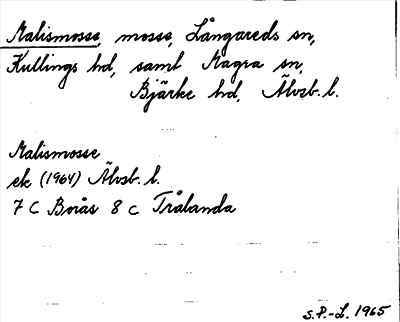 Malismosse, mosse, Långareds sn,
Kullings hd, samt Magra sn,
Bjärke hd, Älvsb. l.
Malismosse
ek (1964) Älvsb. l.
7 C Borås 8 C Trålanda
S.P.-L. 1965